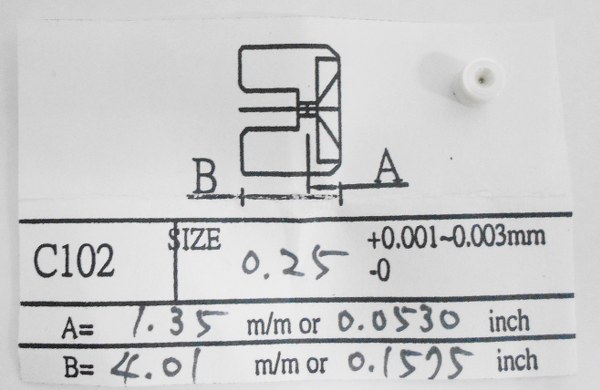 B A
C102 SIZE 0.25 +0.001~0.003mm
-0
A= 1.35 m/m or 0.0530 inch
B= 4.01 m/m or 0.1575 inch